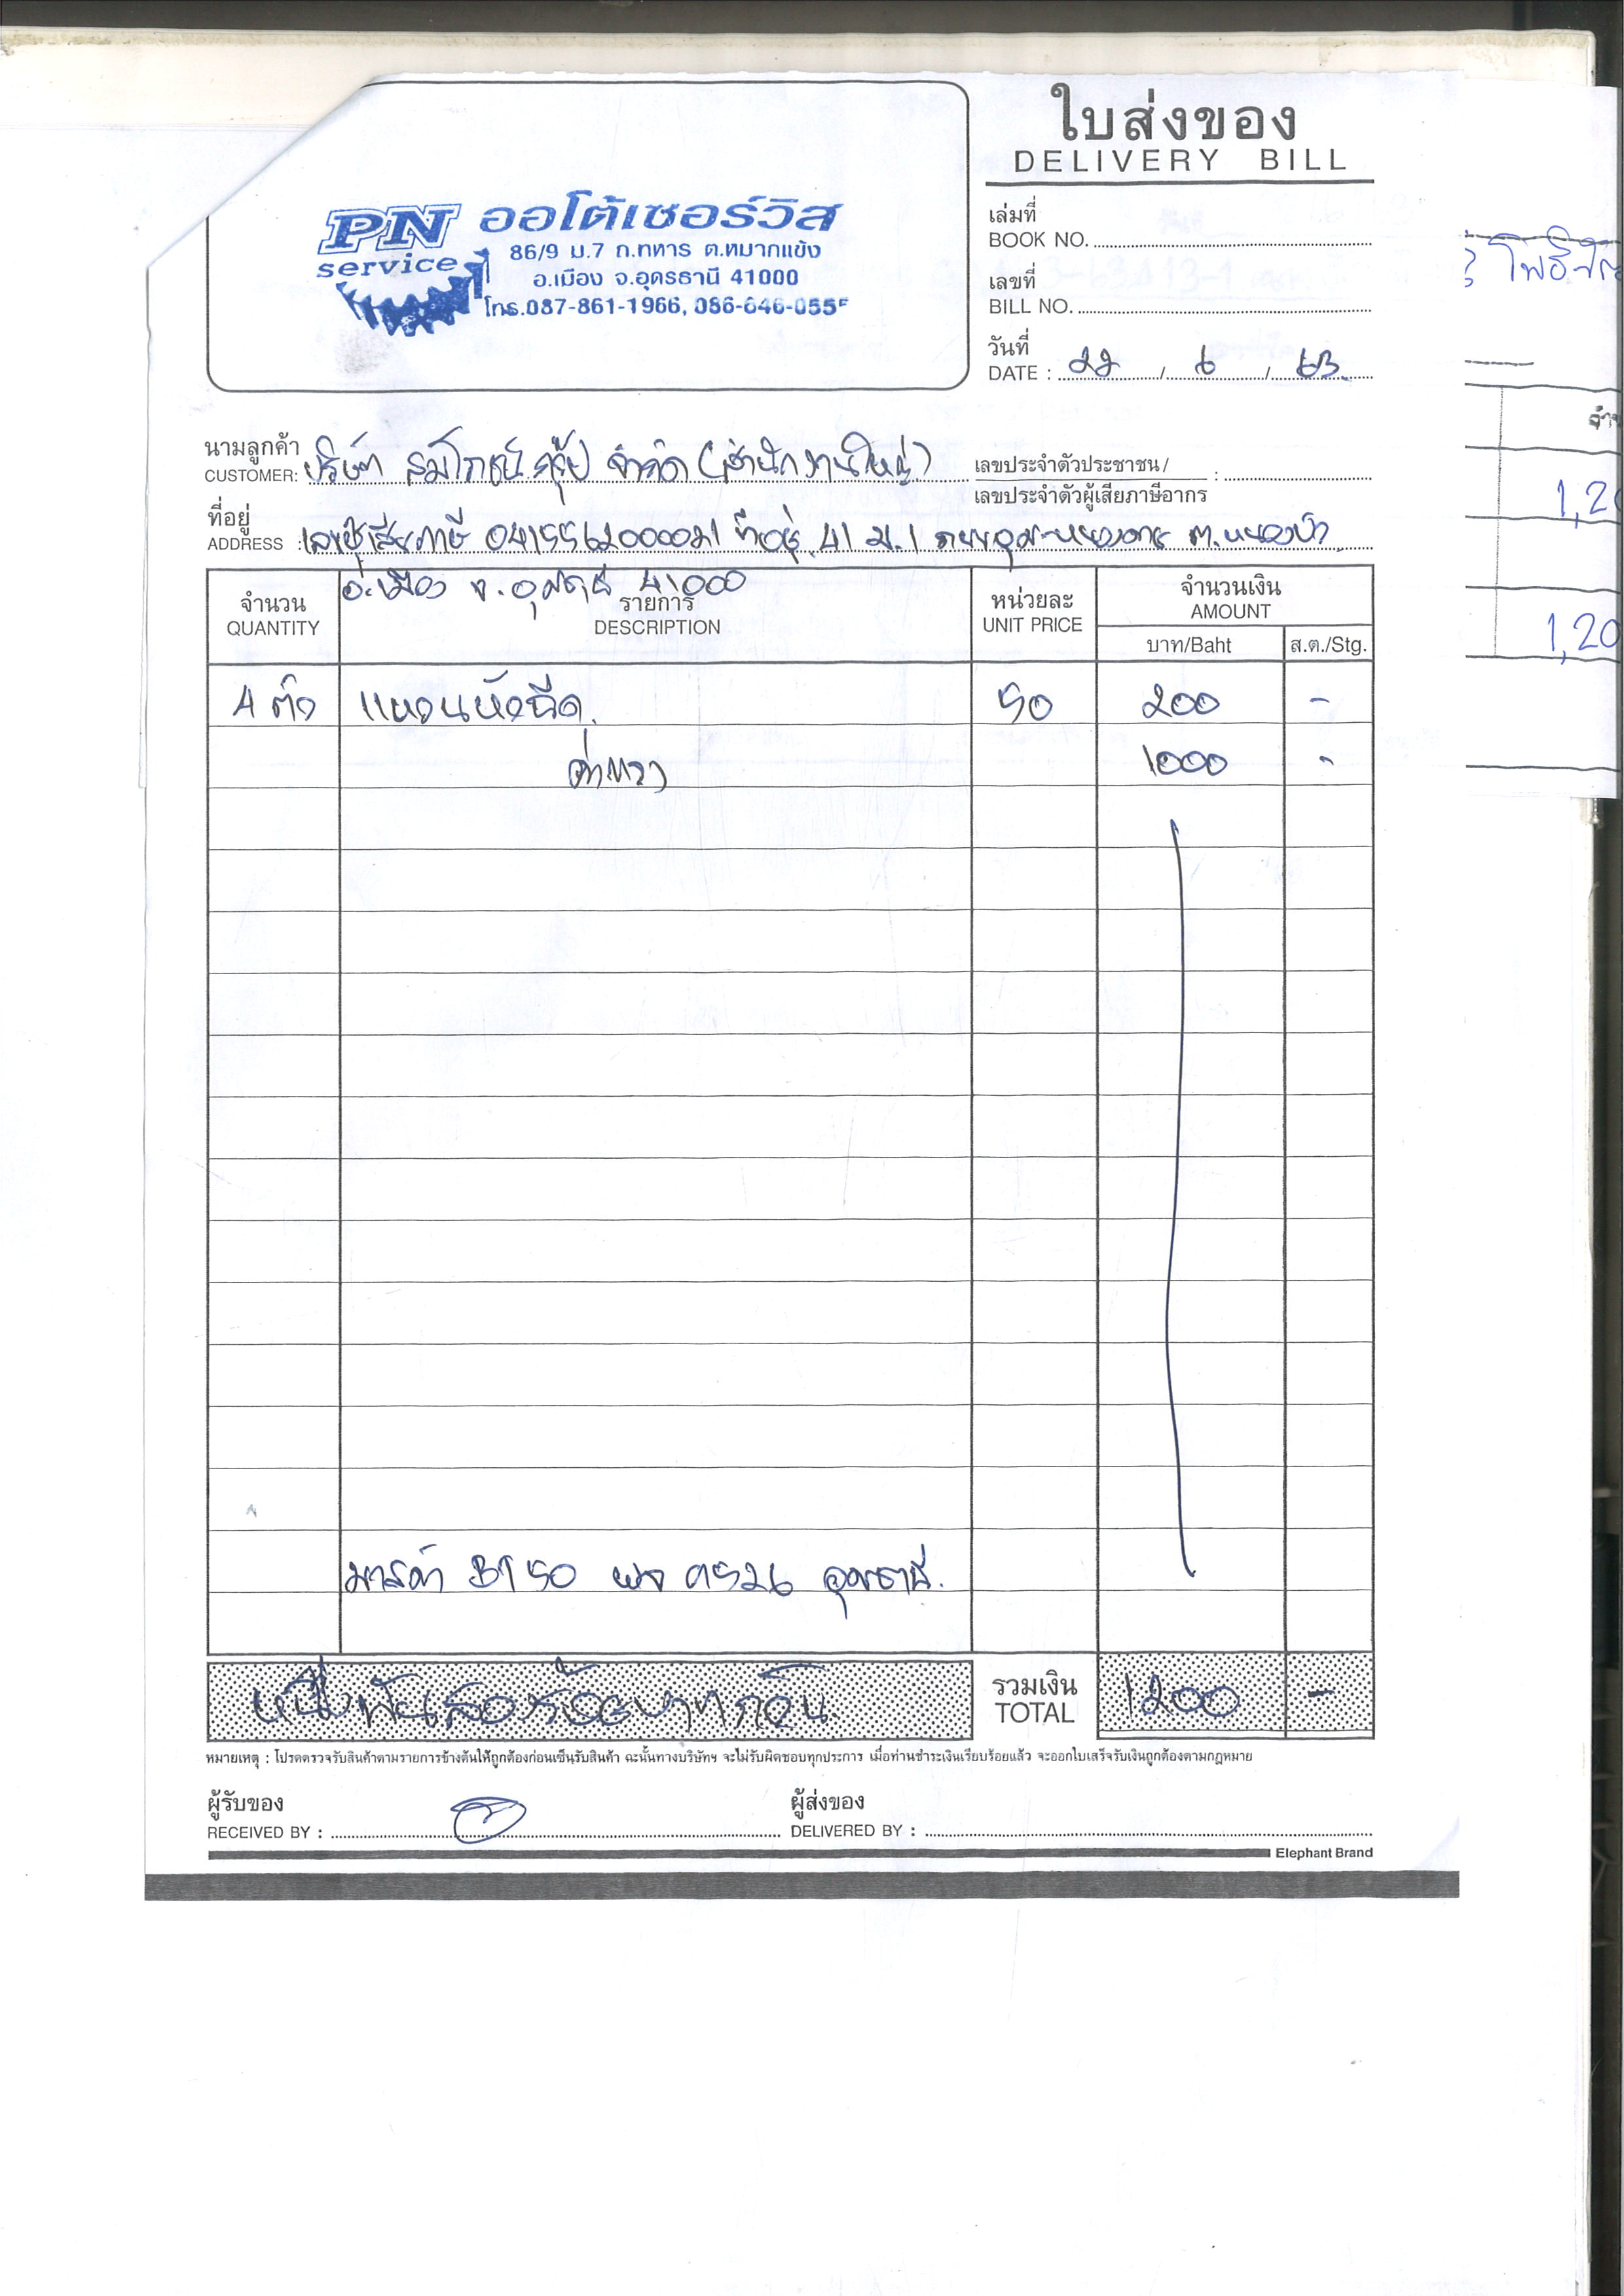 ใบส่งของ
DELIVERY BILL
PN service
ออโต้เซอร์วิส
86/9 ม.7 ถ.ทหาร ต.หมากแข้ง
อ.เมือง จ.อุดรธานี 41000
โทร.087-861-1966, 086-646-055
เล่มที่
BOOK NO.
เลขที่
BILL NO.
วันที่
DATE : 22 / 6 / 63.
นามลูกค้า
CUSTOMER: บริษัท สมโภชน์ กรุ๊ป จำกัด (สำนักงานใหญ่)
เลขประจำตัวประชาชน /
เลขประจำตัวผู้เสียภาษีอากร :
ที่อยู่
ADDRESS : 0415562000021 ที่อยู่ 41 ม.1
อ.เมือง จ.อุดรธานี 41000
จำนวน รายการ หน่วยละ จำนวนเงิน
QUANTITY DESCRIPTION UNIT PRICE AMOUNT
บาท/Baht ส.ต./Stg.
4 ตัว แหวนหัวฉีด 50 200 -
ค่าแรง 1000 -
มาสด้า BT 50 9526 อุดรธานี.
หนึ่งพันสองร้อยบาทถ้วน
รวมเงิน
TOTAL 1200 -
หมายเหตุ : โปรดตรวจรับสินค้าตามรายการข้างต้นให้ถูกต้องก่อนเซ็นรับสินค้า ฉะนั้นทางบริษัทฯ จะไม่รับผิดชอบทุกประการ เมื่อท่านชำระเงินเรียบร้อยแล้ว จะออกใบเสร็จรับเงินถูกต้องตามกฎหมาย
ผู้รับของ
RECEIVED BY :
ผู้ส่งของ
DELIVERED BY :
Elephant Brand
1,20